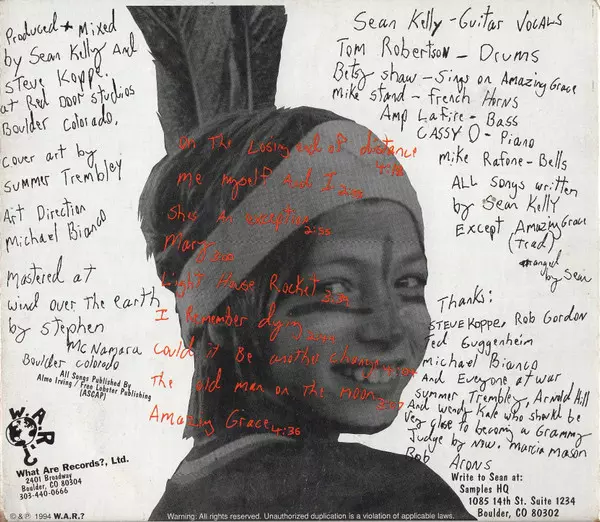 Produced + Mixed
by Sean Kelly And
Steve Koppe.
at Red Door studios
Boulder Colorado.
cover art by
summer Trembley
Art Direction
Michael Bianco
mastered at
wind over The earth
by stephen
McNamara
Boulder colorado
All Songs Published By
Almo Irving / Free Lobster Publishing
(ASCAP)
W.A.R.?
What Are Records?, Ltd.
2401 Broadway
Boulder, CO 80304
303-440-0666
© & ℗ 1994 W.A.R.?
on The Losing end of distance
4:48
me myself and I
shes an exception 2:55
Mary
Light House Rocket
I Remember dying
could it Be another change
The old man on the moon
Amazing Grace 4:36
Sean Kelly - Guitar VOCALS
Tom Robertson - Drums
Betsy shaw - Sings on Amazing Grace
Mike stand - French Horns
Amp LaFire - Bass
CASSY O - Piano
Mike Rafone - Bells
ALL songs written
by Sean Kelly
Except Amazing Grace
(Trad)
arranged
by Sean
Thanks:
STEVE KOPPE, Rob Gordon
Ted Guggenheim
Michael Bianco
And Everyone at war
summer Trembley, Arnold Hill
And wendy Kale who should be
very close to becoming a Grammy
Judge by now. Marcia Mason
Rob Arons
Write to Sean at:
Samples HQ
1085 14th St. Suite 1234
Boulder, CO 80302
Warning: All rights reserved. Unauthorized duplication is a violation of applicable laws.